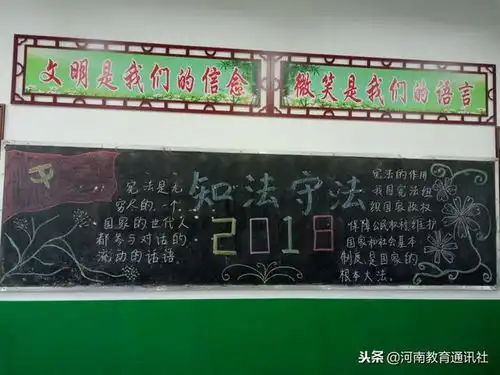 文明是我们的信念
微笑是我们的语言
知法守法
2018
宪法是无
穷尽的一个
国家的世代人
都参与对话的
流动的话语
宪法的作用
我国宪法组
织国家政权
保障公民权利维护
国家和社会基本
制度是国家的
根本大法.
头条@河南教育通讯社